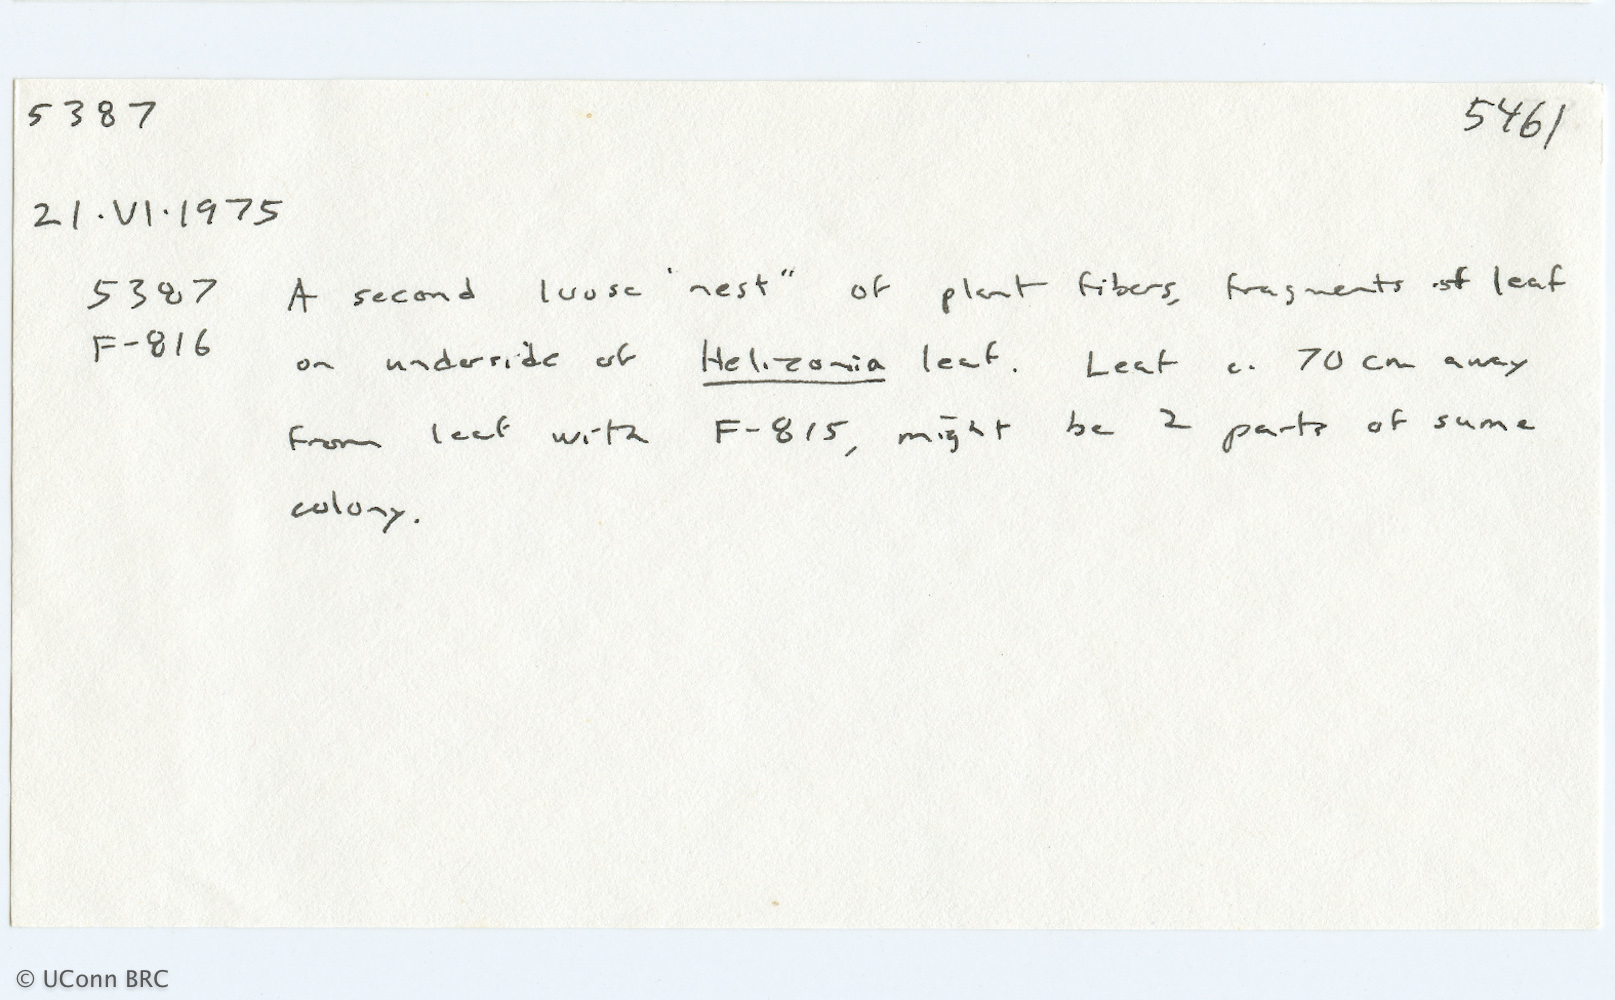 5387 5461
21.VI.1975
5387 A second loose "nest" of plant fibers, fragments of leaf
F-816 on underside of Helizonia leaf. Leaf c. 70 cm away
from leaf with F-815, might be 2 parts of same
colony.
© UConn BRC